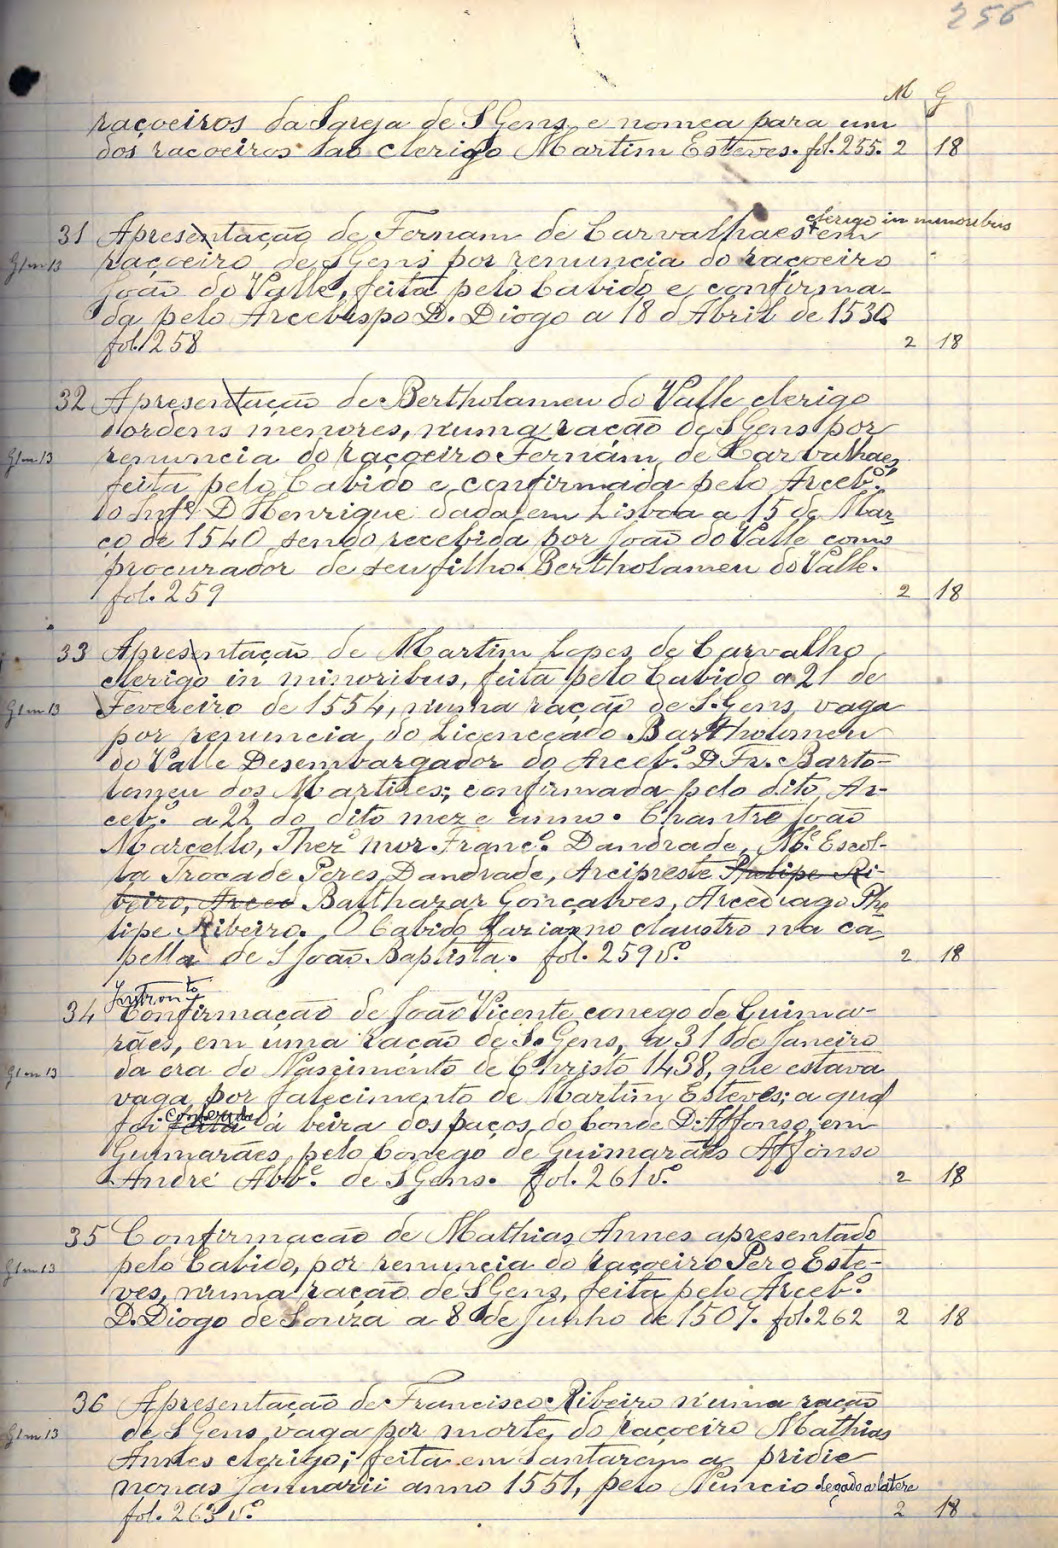 256
M G
raçoeiros da Igreja de S Gens, e nomea para um
dos raçoeiros ao clerigo Martim Esteves. fol. 255. 2 18
31 Apresentação de Fernam de Carvalhaes clerigo in minoribus em
G1m13 raçoeiro de S Gens por renuncia do raçoeiro
João do Valle, feita pelo Cabido e confirma-
da pelo Arcebispo D. Diogo a 18 d'Abril de 1530
fol. 258 2 18
32 Apresentação de Bertholameu do Valle clerigo
d'ordens menores, numa ração de S Gens por
G1m13 renuncia do raçoeiro Fernam de Carvalhaes,
feita pelo Cabido e confirmada pelo Arceb.º
o Inf.e D Henrique dada em Lisboa a 15 de Mar-
ço de 1540 sendo recebida por João do Valle como
procurador de seu filho Bertholameu do Valle.
fol. 259 2 18
33 Apresentação de Martim Lopes de Carvalho
clerigo in minoribus, feita pelo Cabido a 21 de
G1m13 Fevereiro de 1554, numa ração de S. Gens, vaga
por renuncia do Licenceado Bartholomeu
do Valle Desembargador do Arceb.º D Fr. Barto-
lomeu dos Martires; confirmada pelo dito Ar-
ceb.º a 22 do dito mez e anno. Chantre João
Marcello, Thez.º mor Franc.º Dandrade, M.e Escol-
la Trocade Peres Dandrade, Arcipreste Phelipe Ri-
beiro, Arced Balthazar Gonçalves, Arcediago Phe
lipe Ribeiro. O Cabido faria no claustro na ca-
pella de S João Baptista. fol. 259 v.º 2 18
Instrom.to
34 Confirmação de João Vicente conego de Guima-
rães, em uma ração de S. Gens, a 31 de Janeiro
G1m13 da era do Nascimento de Christo 1438, que estava
vaga por falecimento de Martim Esteves; a qual
foi feita conferida á beira dos paços do Conde D. Affonso, em
Guimarães, pelo Conego de Guimarães Affonso
André Abb.e de S Gens. fol. 261 v.º 2 18
35 Confirmação de Mathias Annes apresentado
G1m13 pelo Cabido, por renuncia do raçoeiro Pero Este-
ves, numa ração de S Gens, feita pelo Arceb.º
D. Diogo de Souza a 8 de Junho de 1507. fol. 262 2 18
36 Apresentação de Francisco Ribeiro n'uma ração
G1m13 de S Gens vaga por morte do raçoeiro Mathias
Annes clerigo; feita em Santarem a pridie
nonas Januarii anno 1551, pelo Nuncio legado a latere
fol. 263 v.º 2 18